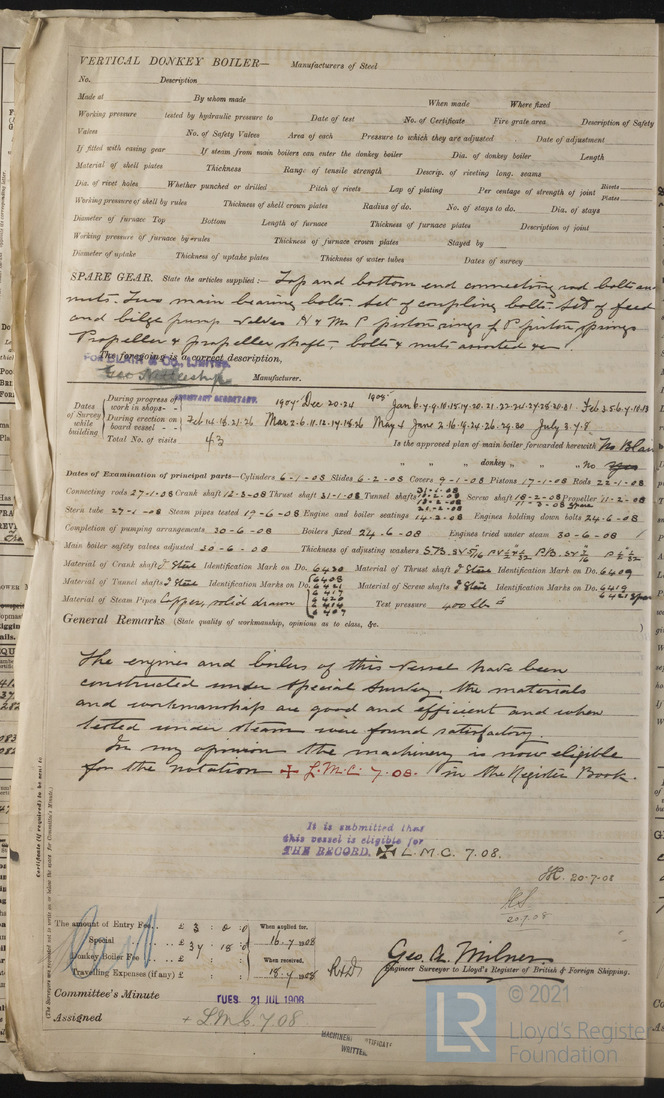 VERTICAL DONKEY BOILER— Manufacturers of Steel
No. Description
Made at By whom made When made Where fixed
Working pressure tested by hydraulic pressure to Date of test No. of Certificate Fire grate area Description of Safety
Valves No. of Safety Valves Area of each Pressure to which they are adjusted Date of adjustment
If fitted with easing gear If steam from main boilers can enter the donkey boiler Dia. of donkey boiler Length
Material of shell plates Thickness Range of tensile strength Descrip. of riveting long. seams
Dia. of rivet holes Whether punched or drilled Pitch of rivets Lap of plating Per centage of strength of joint Rivets Plates
Working pressure of shell by rules Thickness of shell crown plates Radius of do. No. of stays to do. Dia. of stays
Diameter of furnace Top Bottom Length of furnace Thickness of furnace plates Description of joint
Working pressure of furnace by rules Thickness of furnace crown plates Stayed by
Diameter of uptake Thickness of uptake plates Thickness of water tubes Dates of survey
SPARE GEAR. State the articles supplied:— Top and bottom end connecting rod bolts and
nuts. Two main bearing bolts. Set of coupling bolts. Set of feed
and bilge pump valves H & M P piston rings L P piston springs
Propeller & propeller shaft - bolts & nuts assorted &c
The foregoing is a correct description,
FOR BLAIR & CO., LIMITED.
Manufacturer.
ASSISTANT SECRETARY.
Dates of Survey while building
During progress of work in shops - - 1907 Dec 20.24 1908 Jan 6.7.9.10.15.17.20.21.22.24.27.28.30.31 Feb 3.5.6.7.10.13
During erection on board vessel - - Feb 14.18.21.26 Mar 2.6.11.12.17.18.26 May 4 June 2.16.19.24.26.29.30 July 3.7.8
Total No. of visits 43 Is the approved plan of main boiler forwarded herewith No Blair
" " " donkey " " No Yes
Dates of Examination of principal parts—Cylinders 6-1-08 Slides 6-2-08 Covers 9-1-08 Pistons 17-1-08 Rods 22-1-08
Connecting rods 27-1-08 Crank shaft 12-3-08 Thrust shaft 31-1-08 Tunnel shafts 31-1-08 Screw shaft 18-2-08 Propeller 11-2-08
Stern tube 27-1-08 Steam pipes tested 19-6-08 Engine and boiler seatings 14-2-08 Engines holding down bolts 24-6-08
Completion of pumping arrangements 30-6-08 Boilers fixed 24.6-08 Engines tried under steam 30-6-08
Main boiler safety valves adjusted 30-6-08 Thickness of adjusting washers
Material of Crank shaft I Steel Identification Mark on Do. 6420 Material of Thrust shaft I Steel Identification Mark on Do. 6409
Material of Tunnel shafts I Steel Identification Marks on Do. 6408 Material of Screw shafts I Steel Identification Marks on Do. 6419
Material of Steam Pipes Copper, solid drawn Test pressure 400 lbs
General Remarks (State quality of workmanship, opinions as to class, &c.
The engines and boilers of this vessel have been
constructed under special survey. the materials
and workmanship are good and efficient and when
tested under steam were found satisfactory.
In my opinion the machinery is now eligible
for the notation ✠ L.M.C. 7.08. in the Register Book.
It is submitted that
this vessel is eligible for
THE RECORD. ✠ L.M.C. 7.08.
20-7-08
20.7.08
Certificate (if required) to be sent to
(The Surveyors are requested not to write on or below the space for Committee's Minute.)
The amount of Entry Fee.. £ 3 : 0 : 0 When applied for,
Special .. £ 37 : 18 : 0 16.7.1908
Donkey Boiler Fee .. £ : : When received,
Travelling Expenses (if any) £ : : 18.7.1908
Geo. A. Milner
Engineer Surveyor to Lloyd's Register of British & Foreign Shipping.
Committee's Minute TUES. 21 JUL 1908
Assigned + L.M.C. 7.08
MACHINERY CERTIFICATE
WRITTEN.
LR
© 2021
Lloyd's Register
Foundation